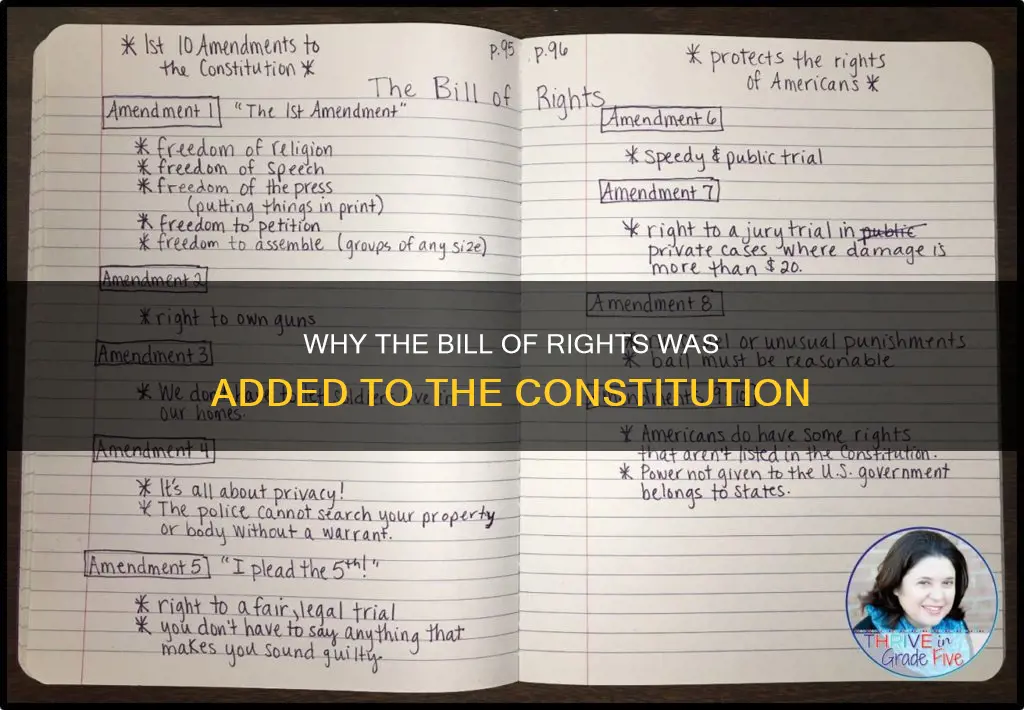 * 1st 10 Amendments to
the Constitution *
p.95
p.96
* protects the rights
of Americans *
The Bill of Rights
Amendment 1 "The 1st Amendment"
* freedom of religion
* freedom of speech
* freedom of the press
(putting things in print)
* freedom to petition
* freedom to assemble (groups of any size)
Amendment 2
* right to own guns
Amendment 3
* We don't
our homes.
Amendment 4
* It's all about privacy!
* The police cannot search your property
or body without a warrant.
Amendment 5 "I plead the 5th!"
* right to a fair, legal trial
* you don't have to say anything that
makes you sound guilty.
Amendment 6
* Speedy & public trial
Amendment 7
* right to a jury trial in public
private cases where damage is
more than $20.
Amendment 8
or unusual punishments
* bail must be reasonable
* Americans do have some rights
that aren't listed in the Constitution.
* Power not given to the U.S. government
belongs to states.
WHY THE BILL OF RIGHTS WAS
ADDED TO THE CONSTITUTION
THRIVE in
Grade Five